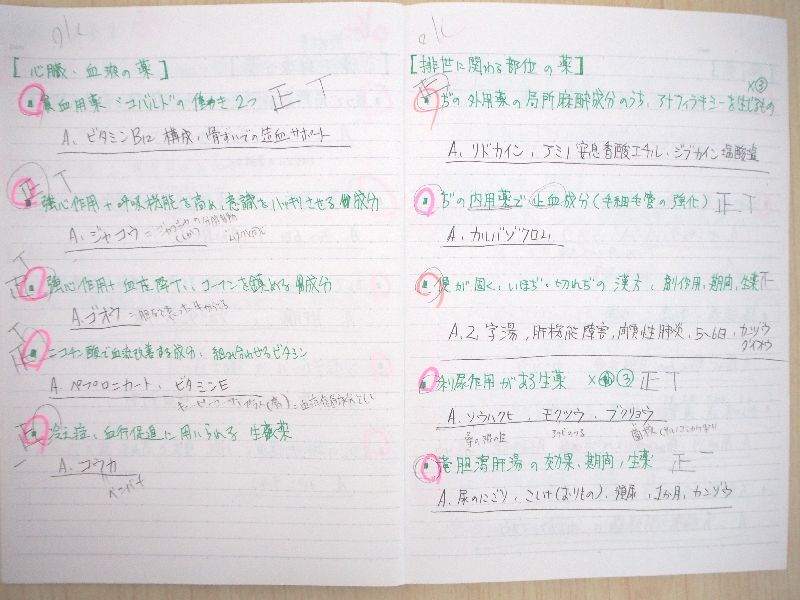 ok
[心臓・血液の薬]
貧血用薬 "コバルト"の働き 2つ 正丅
A. ビタミンB12 構成、骨ずいでの造血サポート
正丅
強心作用+呼吸機能を高め、意識をハッキリさせる成分
A. ジャコウ = ジャコウジカの分泌物
強心作用+血圧降下、コーフンを鎮める成分
A. ゴオウ =
ニコチン酸で血流改善する成分、組み合わせるビタミン
A. ヘプロニカート、ビタミンE
冷え症、血行促進に用いられる 生薬
A. コウカ
ベニバナ
ok
[排泄に関わる部位の薬]
×③
ぢの外用薬の局所麻酔成分のうち、アナフィラキシーを生じるもの
A. リドカイン、アミノ安息香酸エチル、ジブカイン塩酸塩
ぢの内用薬で止血成分(毛細毛管の強化) 正丅
A. カルバゾクロム
便が固く、いぼぢ・切れぢの漢方、副作用、期間、生薬 正
A. 乙字湯、肝機能障害、間質性肺炎、5~6日、カンゾウ
ダイオウ
利尿作用がある生薬 ×③ 正丅
A. ソウハクヒ、モクツウ、ブクリョウ
菌核
竜胆瀉肝湯の効果、期間、生薬 正一
A. 尿のにごり、こしけ(おりもの)、頻尿、1か月、カンゾウ